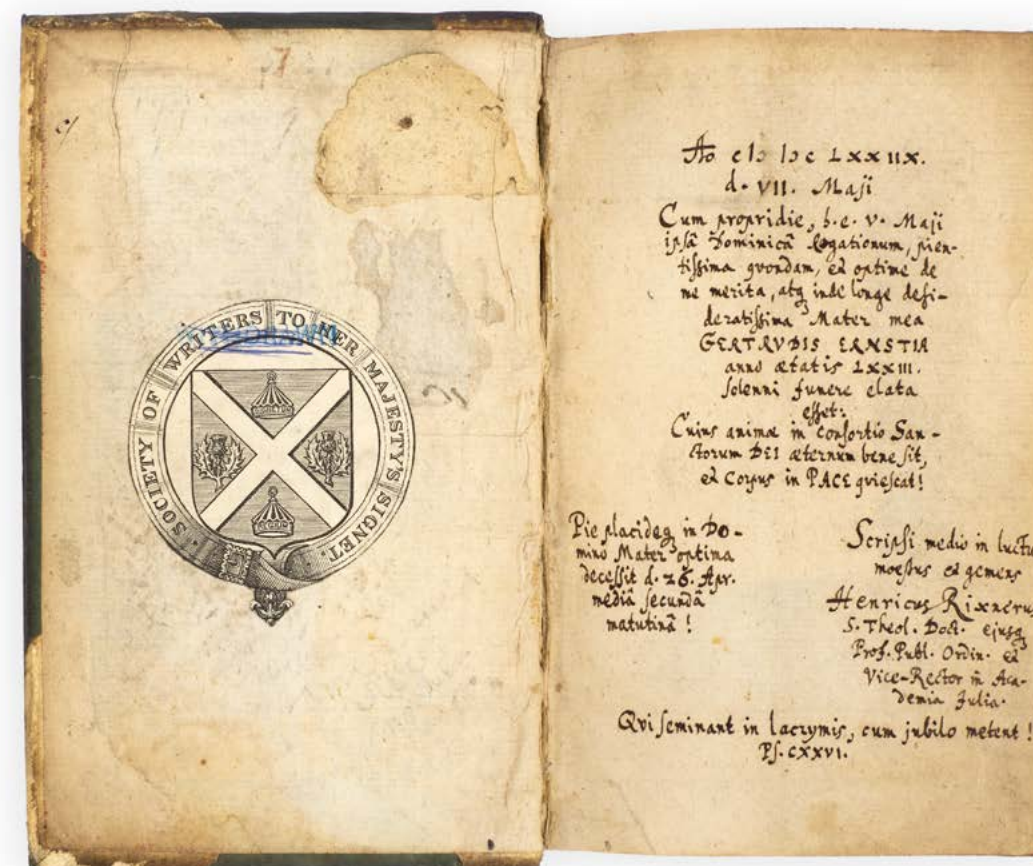 7
SOCIETY OF WRITERS TO HER MAJESTY'S SIGNET.
REGIUM
Ao cIɔ Iɔc LXXIIX.
d. VII. Maji
Cum propridie, h.e. V. Maji
ipsâ Dominicâ Rogationum, pien-
tißima qvondam, et optime de
me merita, atq inde longe desi-
deratißima Mater mea
GERTRVDIS ERNSTIA
anno ætatis LXXIII.
solenni funere elata
esset:
Cuius animæ in consortio San-
ctorum DEI æternum bene sit,
et Corpus in PACE qviescat!
Pie placideq in Do-
mino Mater optima
decessit d. 26. Apr.
mediâ secundâ
matutinâ!
Scripsi medio in luctu
moestus et gemens
Henricus Rixnerus
S. Theol. Doct. ejusq
Prof. Publ. Ordin. et
Vice-Rector in Aca-
demia Julia.
Qvi seminant in lacrymis, cum jubilo metent!
Ps. CXXVI.